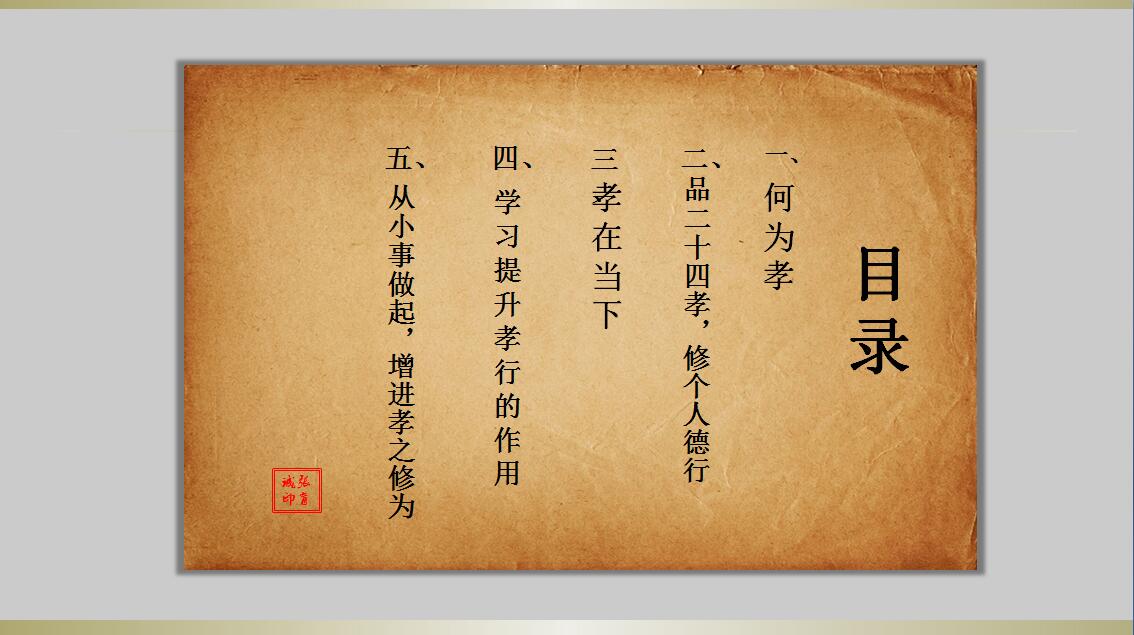 目录
一、何为孝
二、品二十四孝，修个人德行
三孝在当下
四、学习提升孝行的作用
五、从小事做起，增进孝之修为
张育
诚印